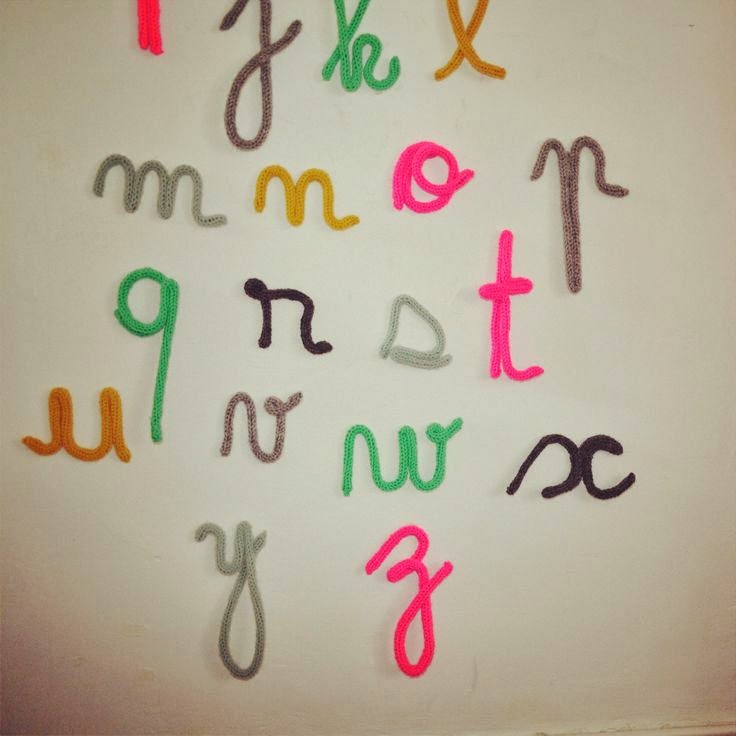 i j k l
m n o p
q r s t
u v w x
y z